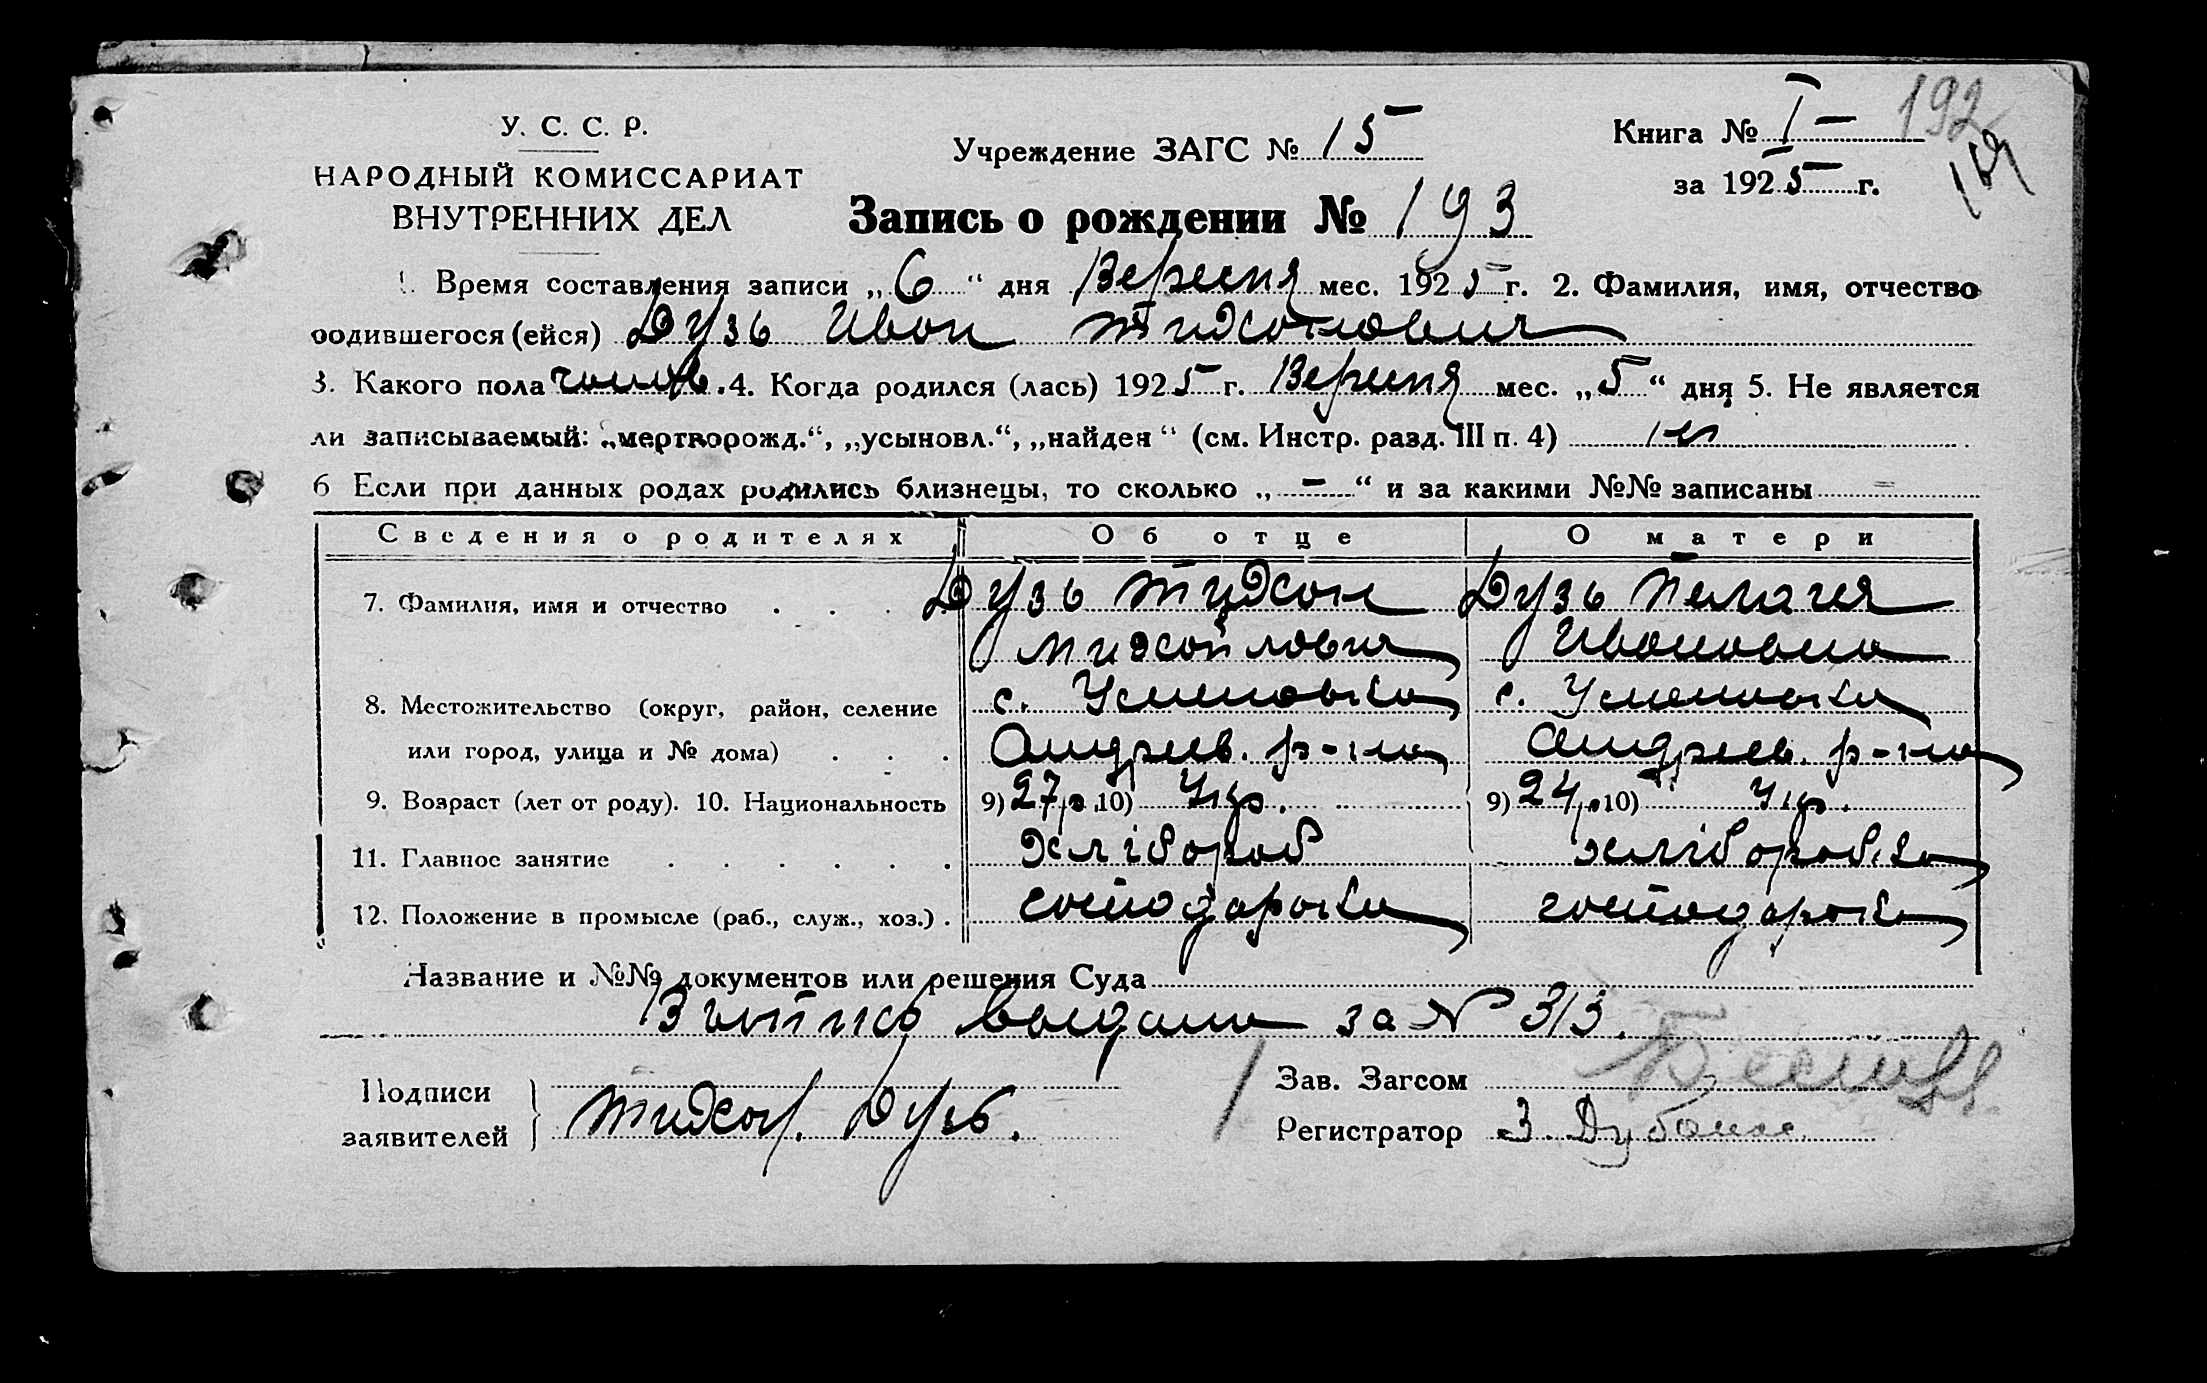 У. С. С. Р.
НАРОДНЫЙ КОМИССАРИАТ
ВНУТРЕННИХ ДЕЛ
Учреждение ЗАГС № 15
Книга № I – 192
за 1925 г.
Запись о рождении № 193
1. Время составления записи „6“ дня Вересня мес. 1925 г. 2. Фамилия, имя, отчество
родившегося (ейся) Дузь Иван Тихонович
3. Какого пола чолов. 4. Когда родился (лась) 1925 г. Вересня мес. „5“ дня 5. Не является
ли записываемый: „мертворожд.“, „усыновл.“, „найден“ (см. Инстр. разд. III п. 4) ні
6 Если при данных родах родились близнецы, то сколько „–“ и за какими №№ записаны –
Сведения о родителях Об отце О матери
7. Фамилия, имя и отчество Дузь Тихон Дузь Пелагея
Михайлович Ивановна
8. Местожительство (округ, район, селение с. Успеновка с. Успеновка
или город, улица и № дома) Андреев. р-на Андреев. р-на
9. Возраст (лет от роду). 10. Национальность 9) 27 р. 10) Укр. 9) 24 р. 10) Укр.
11. Главное занятие хлібороб хліборобка
12. Положение в промысле (раб., служ., хоз.) господарька господарька
Название и №№ документов или решения Суда
за № 313.
Подписи
заявителей Тихон. Дузь.
Зав. Загсом
Регистратор З.